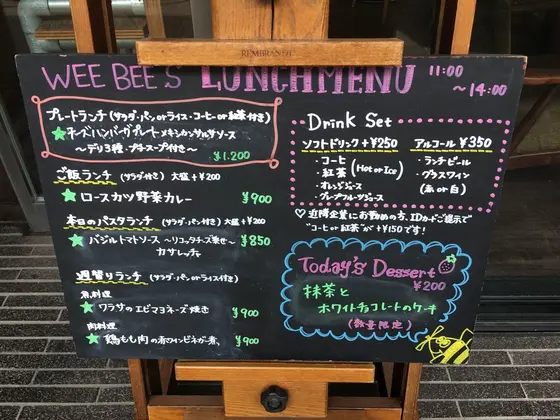 REMBRANDT
WEE BEE'S LUNCHMENU 11:00
～14:00
プレートランチ (サラダ・パンorライス・コーヒーor紅茶付き)
★チーズハンバーグプレート メキシカンサルサソース
～デリ3種・プチスープ付き～
¥1.200
ご飯ランチ (サラダ付き) 大盛+¥200
★ロースカツ野菜カレー ¥900
本日のパスタランチ (サラダ・パン付き) 大盛+¥200
★バジルトマトソース ～リコッタチーズ乗せ～ ¥850
カサレッチェ
週替りランチ (サラダ・パンorライス付き)
魚料理
★ワラサのエビマヨネーズ焼き ¥900
肉料理
★鶏もも肉の赤ワインビネガー煮、 ¥900
Drink Set
ソフトドリンク+¥250
・コーヒー
・紅茶 (Hot or Ice)
・オレンジジュース
・グレープフルーツジュース
アルコール ¥350
・ランチビール
・グラスワイン
(赤 or 白)
♡近隣企業にお勤めの方、IDカードご提示で
"コーヒーor紅茶"が+¥150です!
Today's Dessert
¥200
抹茶と
ホワイトチョコレートのケーキ
(数量限定)